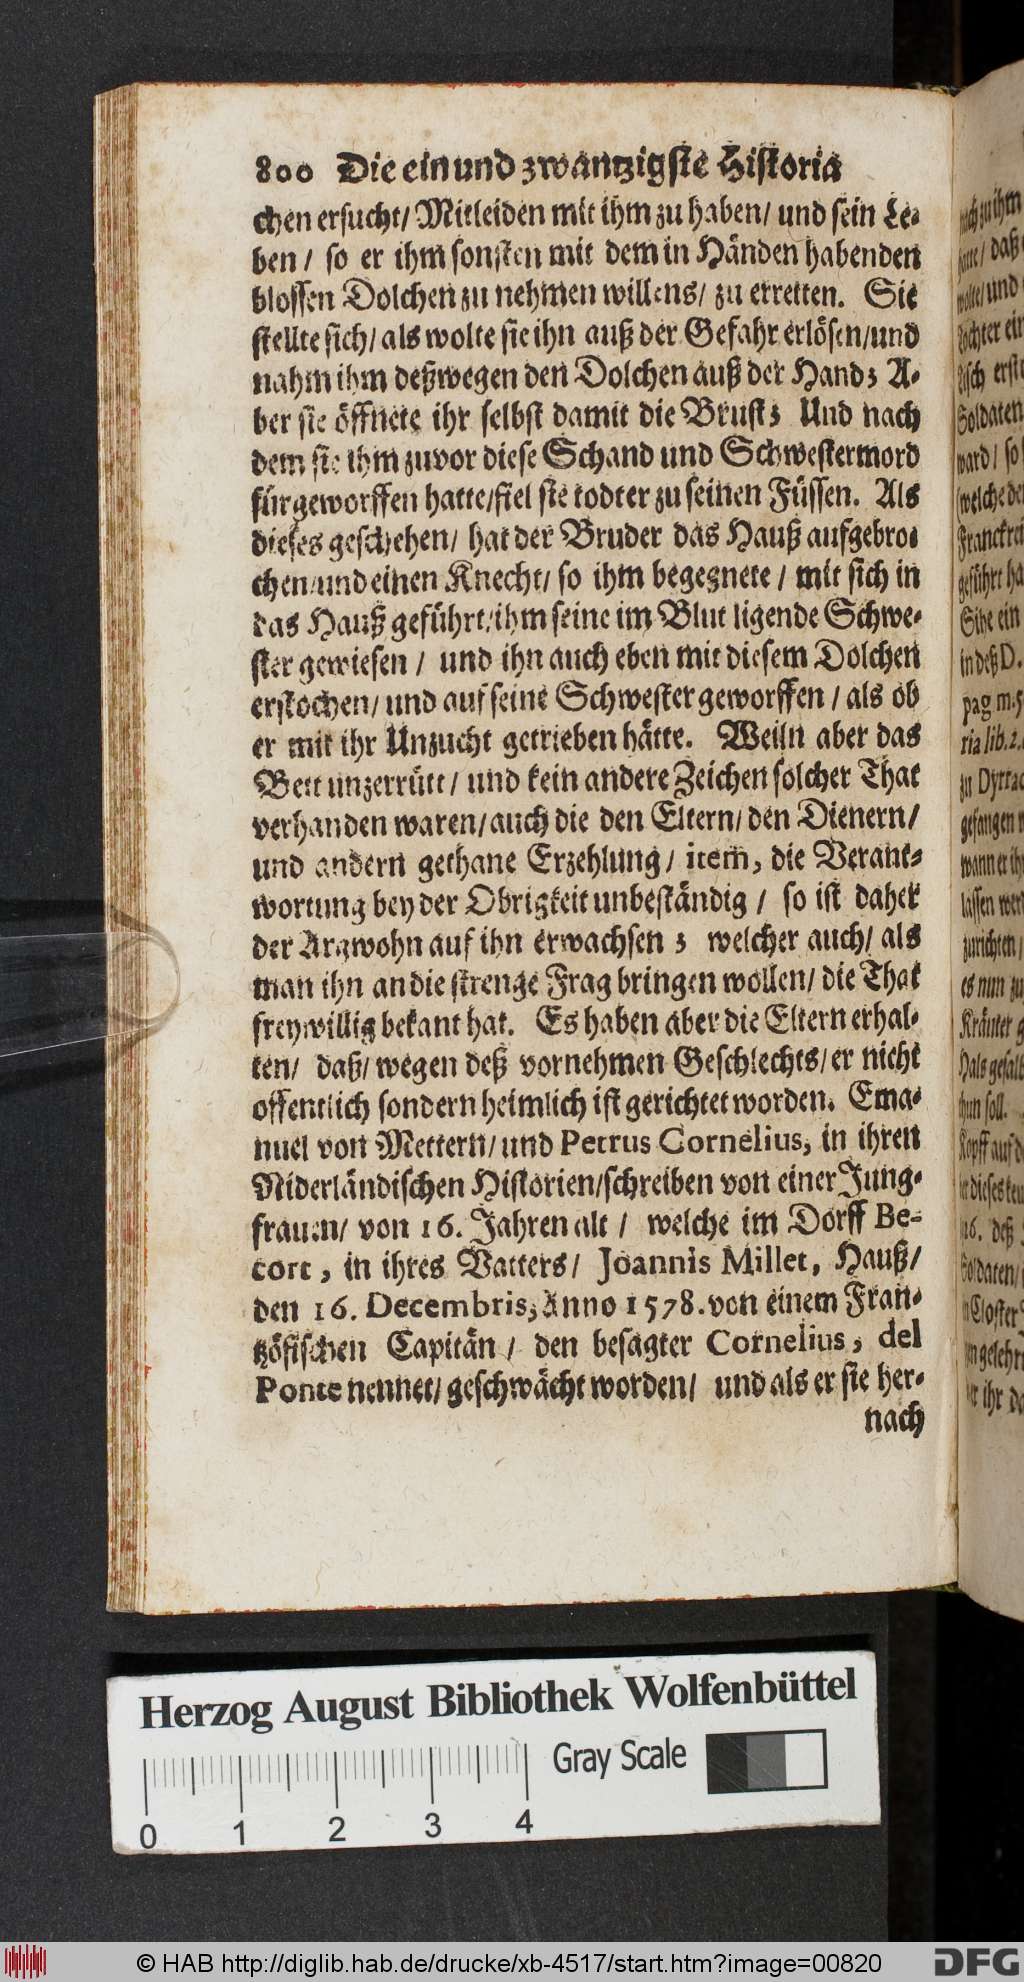 800 Die ein und zwantzigste Historia
chen ersucht/ Mitleiden mit ihm zu haben/ und sein Le-
ben / so er ihm sonsten mit dem in Händen habenden
blossen Dolchen zu nehmen willens/ zu erretten. Sie
stellte sich/ als wolte sie ihn auß der Gefahr erlösen/und
nahm ihm deßwegen den Dolchen auß der Hand; A-
ber sie öffnete ihr selbst damit die Brust; Und nach
dem sie ihm zuvor diese Schand und Schwestermord
fürgeworffen hatte/fiel sie todter zu seinen Füssen. Als
dieses geschehen/ hat der Bruder das Hauß aufgebro-
chen/und einen Knecht/ so ihm begegnete / mit sich in
das Hauß geführt/ihm seine im Blut ligende Schwe-
ster gewiesen / und ihn auch eben mit diesem Dolchen
erstochen/ und auf seine Schwester geworffen / als ob
er mit ihr Unzucht getrieben hätte. Weiln aber das
Bett unzerrütt/ und kein andere Zeichen solcher That
verhanden waren/auch die den Eltern/ den Dienern/
und andern gethane Erzehlung/ item, die Verant-
wortung bey der Obrigkeit unbeständig / so ist daher
der Argwohn auf ihn erwachsen ; welcher auch/ als
man ihn an die strenge Frag bringen wollen/ die That
freywillig bekant hat. Es haben aber die Eltern erhal-
ten/ daß/ wegen deß vornehmen Geschlechts/ er nicht
offentlich sondern heimlich ist gerichtet worden. Ema-
nuel von Mettern/ und Petrus Cornelius, in ihren
Niderländischen Historien/schreiben von einer Jung-
frauen/ von 16. Jahren alt / welche im Dorff Be-
cort, in ihres Vatters/ Joannis Millet, Hauß/
den 16. Decembris, Anno 1578. von einem Fran-
tzösischen Capitän / den besagter Cornelius, del
Ponte nennet/ geschwächt worden/ und als er sie her-
nach
nach zu ihm
hatte / daß
wolte/ und
Tochter ein
Tisch erst
Soldaten
ward / so
(welche de
Franckrei
geführt ha
Sihe ein
in deß D.
pag m.5
ria lib.2.
zu Dyrrac
gefangen
wann er ih
lassen wer
zurichten/
es nun zu
Kräuter g
Hals gesalb
thun soll.
Kopff auf d
er dieses keu
16. deß
Soldaten/
n Closter
en gelehr
er ihr de
Herzog August Bibliothek Wolfenbüttel
Gray Scale
0 1 2 3 4
© HAB http://diglib.hab.de/drucke/xb-4517/start.htm?image=00820
DFG